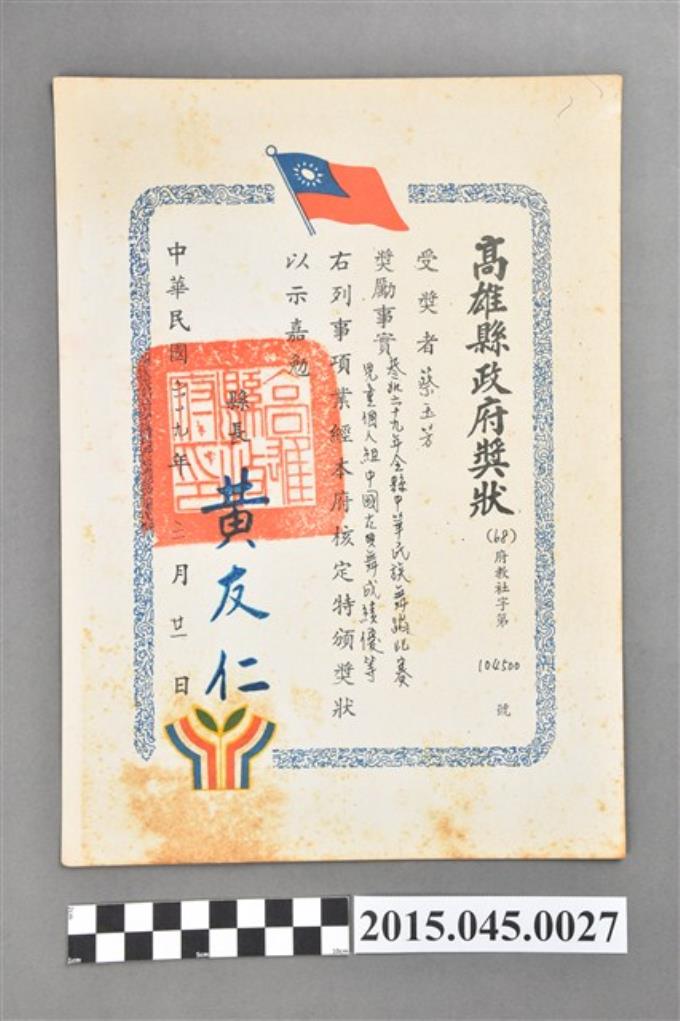 高雄縣政府獎狀
(68)府教社字第104500號
受獎者蔡玉芳
獎勵事實參加六十九年全縣中華民族舞蹈比賽
兒童個人組中國古典舞成績優等
右列事項業經本府核定特頒獎狀
以示嘉勉
縣長 黃友仁
中華民國六十九年二月廿一日
高雄縣政府印
2015.045.0027
2cm
5cm
10cm